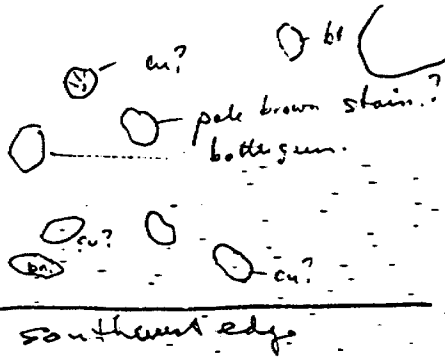 br
cu?
pale brown stain.?
bottle green.
cu?
bn.
cu?
southwest edge